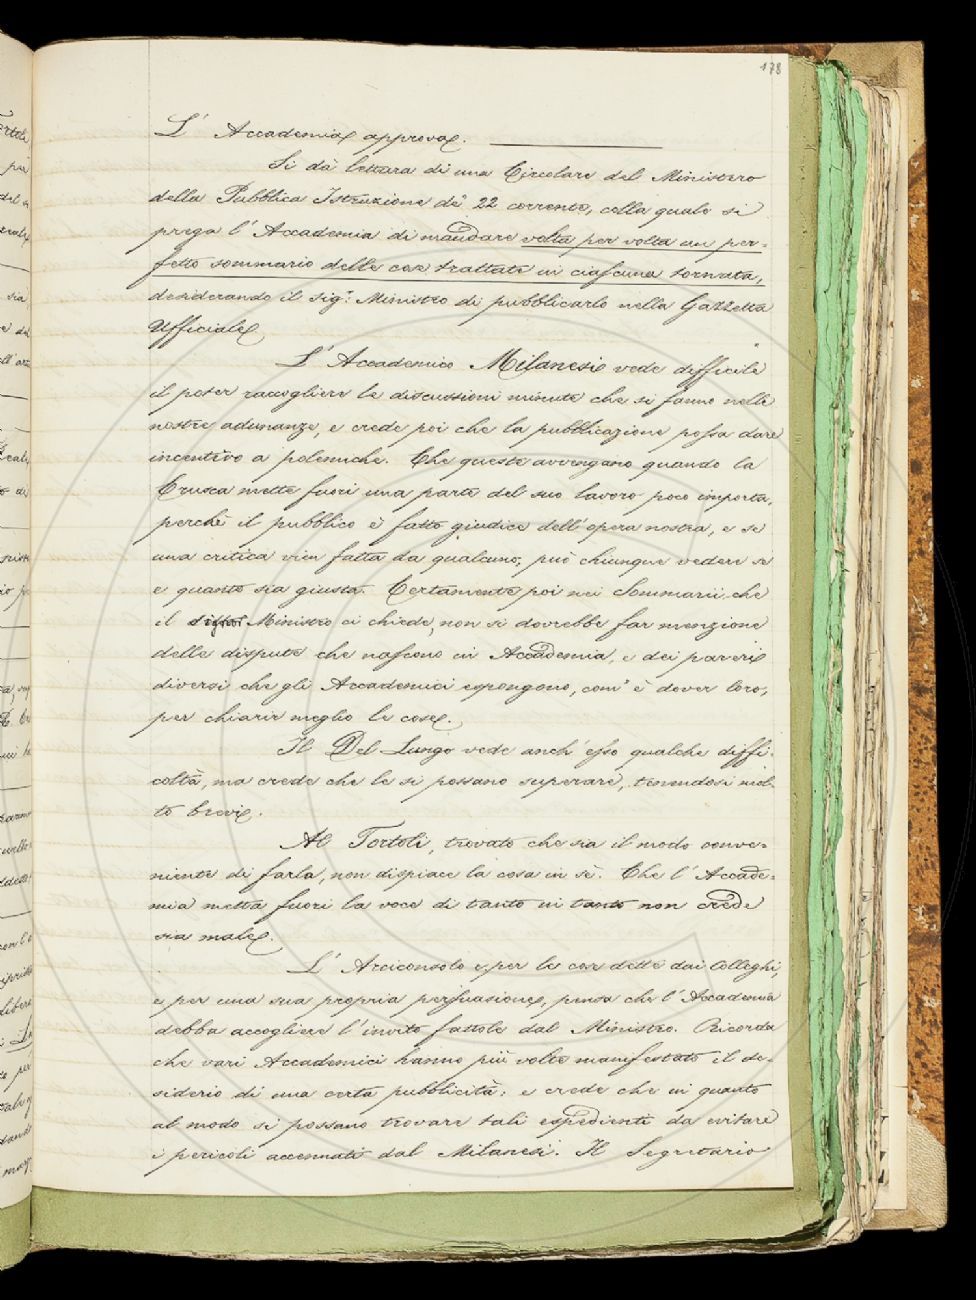 178
L' Accademia approva.
Si dà lettura di una Circolare del Ministero
della Pubblica Istruzione de' 22 corrente, colla quale si
prega l' Accademia di mandare volta per volta un per-
fetto sommario delle cose trattate in ciascuna tornata,
desiderando il sig.r Ministro di pubblicarlo nella Gazzetta
Ufficiale.
L' Accademico Milanesi vede difficile
il poter raccogliere le discussioni minute che si fanno nelle
nostre adunanze, e crede poi che la pubblicazione possa dare
incentivo a polemiche. Che queste avvengano quando la
Crusca mette fuori una parte del suo lavoro poco importa,
perchè il pubblico è fatto giudice dell' opera nostra, e se
una critica vien fatta da qualcuno, può chiunque vedere se
e quanto sia giusta. Certamente poi nei Sommarii che
il Ministro ci chiede, non si dovrebbe far menzione
delle dispute che nascono in Accademia, e dei pareri
diversi che gli Accademici espongono, com' è dover loro,
per chiarir meglio le cose.
Il Del Lungo vede anch' esso qualche diffi-
coltà, ma crede che le si possano superare, tenendosi mol-
to brevi.
Al Tortoli, trovato che sia il modo conve-
niente di farla, non dispiace la cosa in sè. Che l' Accade-
mia metta fuori la voce di tanto in tanto non crede
sia male.
L' Arciconsolo e per le cose dette dai Colleghi,
e per una sua propria persuasione, pensa che l' Accademia
debba accogliere l' invito fattole dal Ministro. Ricorda
che vari Accademici hanno più volte manifestato il de-
siderio di una certa pubblicità; e crede che in quanto
al modo si possano trovare tali espedienti da evitare
i pericoli accennati dal Milanesi. Il Segretario